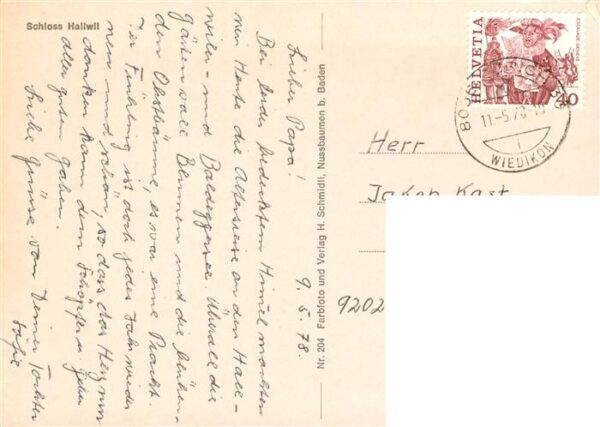 Schloss Hallwil
9. 5. 78.
Lieber Papa!
Bei leider bedecktem Himel machten
wir Heute die Altersreise an den Hall-
wiler- und Baldeggersee. Überall die
Gärten voll Blumen und die blühen-
den Obstbäume, es war eine Pracht.
Der Frühling ist doch jedes Jahr wieder
neu und schön, so dass das Herz nur
danken kann dem Schöpfer u. Geber
aller guten Gaben.
Liebe Grüsse von Deiner Tochter
Nr. 204 Farbfoto und Verlag H. Schmidli, Nussbaumen b. Baden
HELVETIA
ESCALADE GENÈVE
40
11-5.78
WIEDIKON
Herr
Jakob Kast
9202